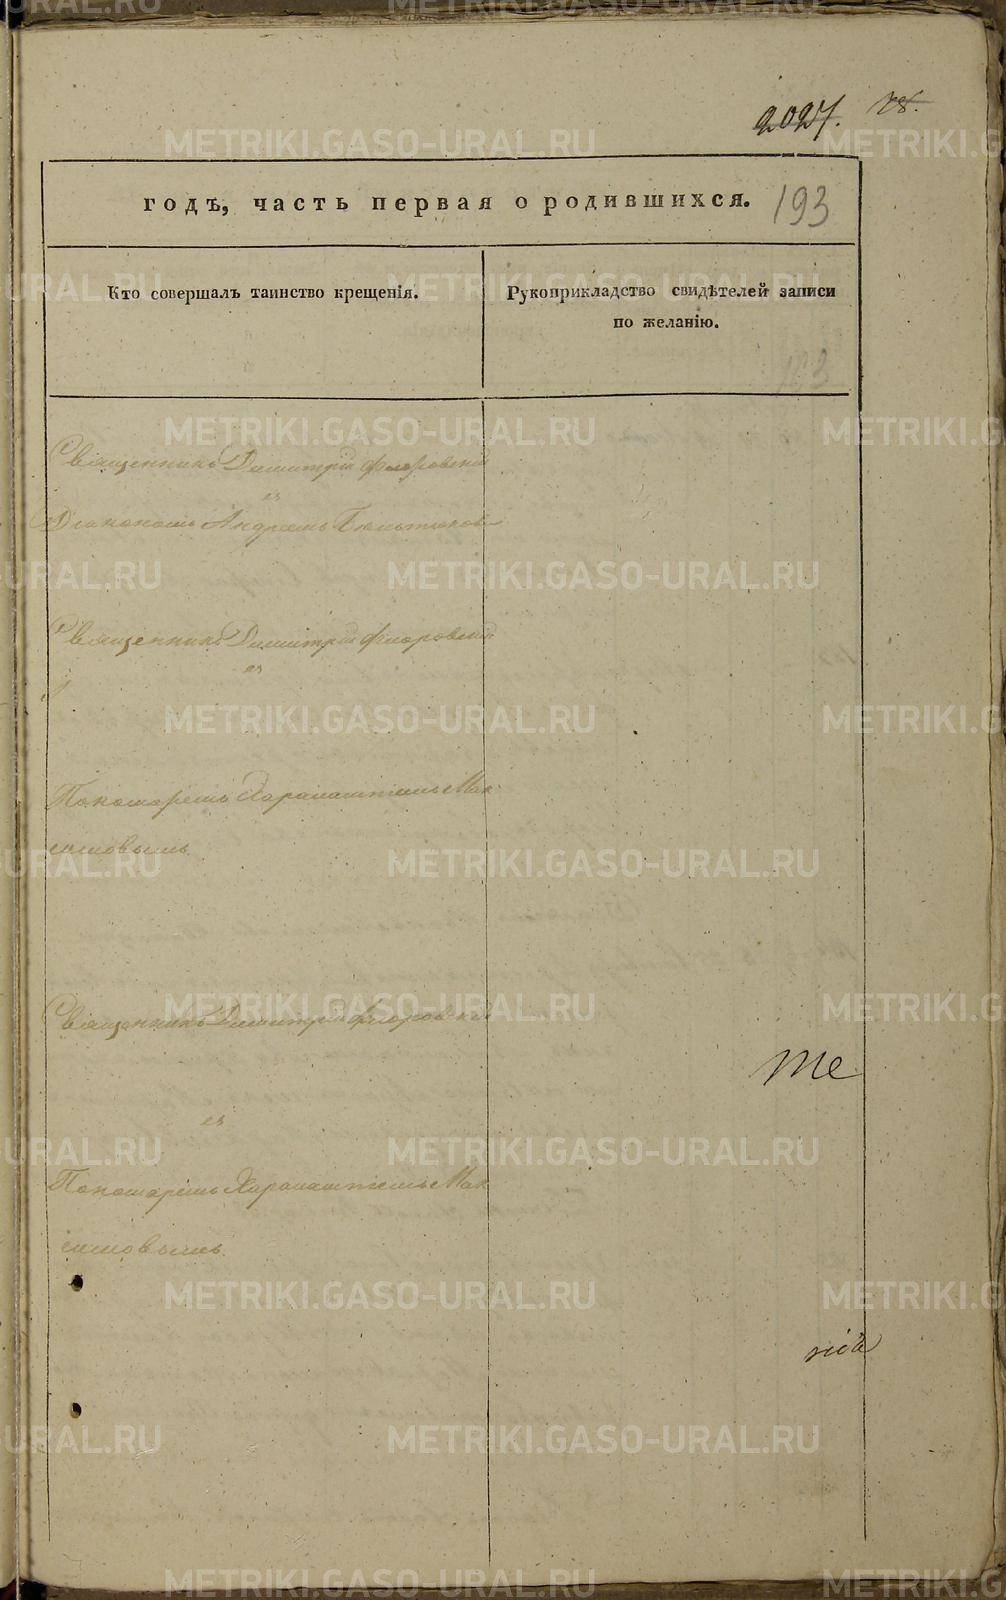 2027. 78.
годъ, часть первая о родившихся. 193
Кто совершалъ таинство крещенія.
Рукоприкладство свидѣтелей записи
по желанію.
Священникъ Димитрій Флоровскій
съ
Діакономъ Андреемъ
Священникъ Димитрій Флоровскій
съ
Пономаремъ Харалампіемъ Мак
симовымъ.
Священникъ Димитрій Флоровскій
съ
Пономаремъ Харалампіемъ Мак
симовымъ.
METRIKI.GASO-URAL.RU